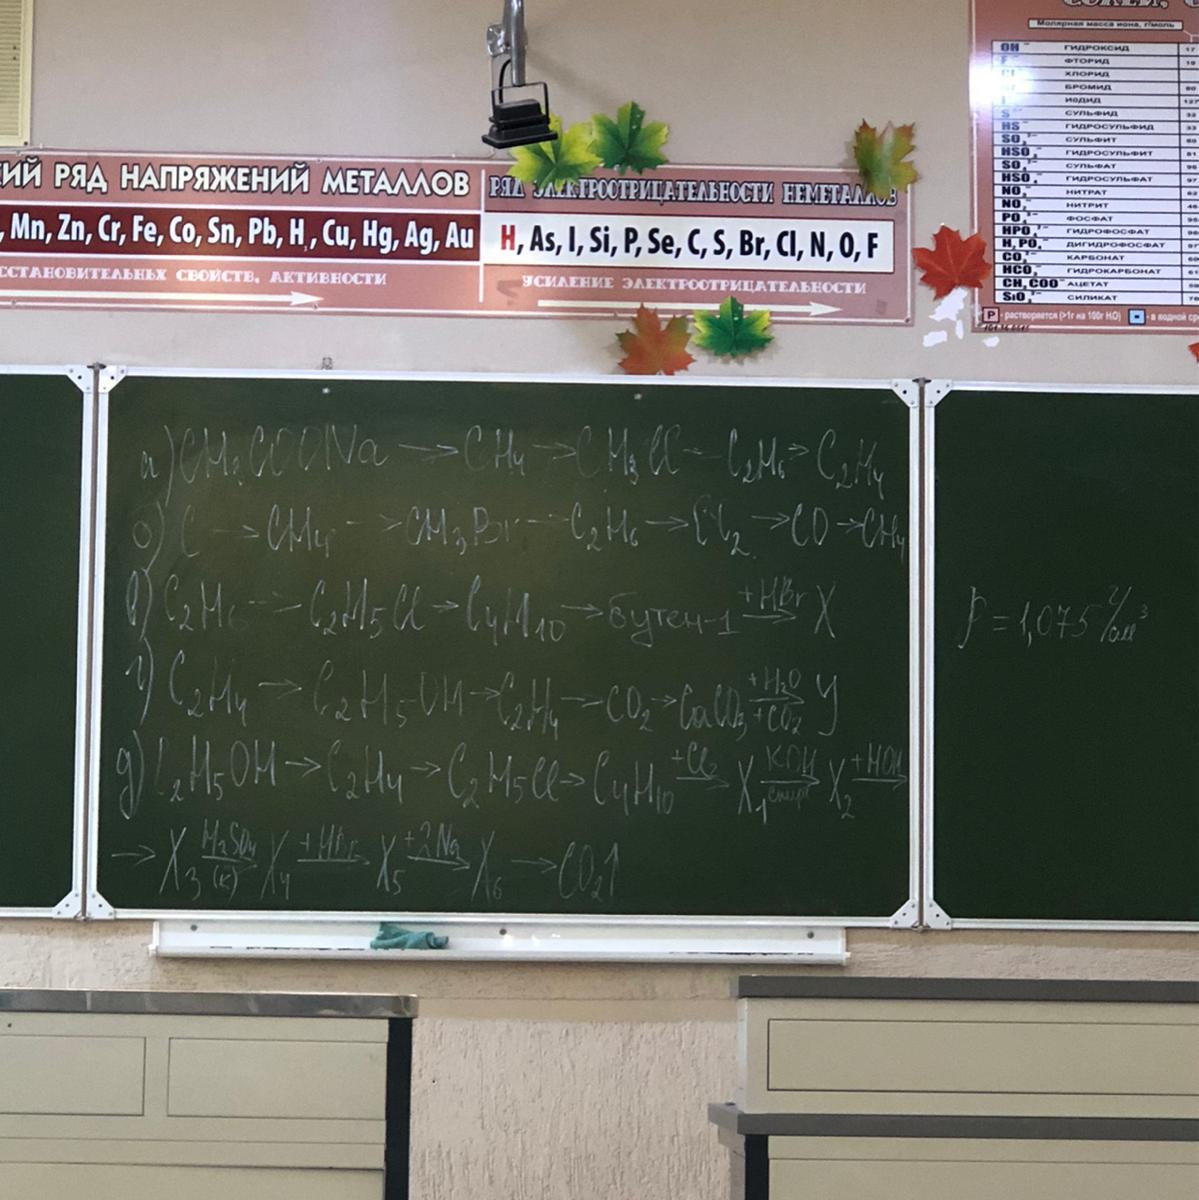 ИЙ РЯД НАПРЯЖЕНИЙ МЕТАЛЛОВ
, Mn, Zn, Cr, Fe, Co, Sn, Pb, H₂, Cu, Hg, Ag, Au
ССТАНОВИТЕЛЬНЫХ СВОЙСТВ, АКТИВНОСТИ
РЯД ЭЛЕКТРООТРИЦАТЕЛЬНОСТИ НЕМЕТАЛЛОВ
H, As, I, Si, P, Se, C, S, Br, Cl, N, O, F
УСИЛЕНИЕ ЭЛЕКТРООТРИЦАТЕЛЬНОСТИ
Молярная масса иона, г/моль
OH⁻ ГИДРОКСИД 17
F⁻ ФТОРИД 19
Cl⁻ ХЛОРИД
БРОМИД 80
I⁻ ИОДИД 127
S²⁻ СУЛЬФИД 32
HS⁻ ГИДРОСУЛЬФИД 33
SO₃²⁻ СУЛЬФИТ 80
HSO₃⁻ ГИДРОСУЛЬФИТ 81
SO₄²⁻ СУЛЬФАТ 96
HSO₄⁻ ГИДРОСУЛЬФАТ 97
NO₃⁻ НИТРАТ
NO₂⁻ НИТРИТ 46
PO₄³⁻ ФОСФАТ 95
HPO₄²⁻ ГИДРОФОСФАТ 96
H₂PO₄⁻ ДИГИДРОФОСФАТ 97
CO₃²⁻ КАРБОНАТ 60
HCO₃⁻ ГИДРОКАРБОНАТ 61
CH₃COO⁻ АЦЕТАТ 59
SiO₃²⁻ СИЛИКАТ
Р - растворяется (>1г на 100г H₂O) - в водной ср
а) CH₃COONa → CH₄ → CH₃Cl → C₂H₆ → C₂H₄
б) C → CH₄ → CH₃Br → C₂H₆ → CO₂ → CO → CH₄
в) C₂H₆ → C₂H₅Cl → C₄H₁₀ → бутен-1 +HBr→ X
г) C₂H₄ → C₂H₅OH → C₂H₄ → CO₂ → CaCO₃ +H₂O +CO₂→ У
д) C₂H₅OH → C₂H₄ → C₂H₅Cl → C₄H₁₀ +Cl₂→ X₁ KOH спирт→ X₂ +HOH→
→ X₃ H₂SO₄ (к)→ X₄ +HBr→ X₅ +2Na→ X₆ → CO₂↑
ρ = 1,075 г/см³